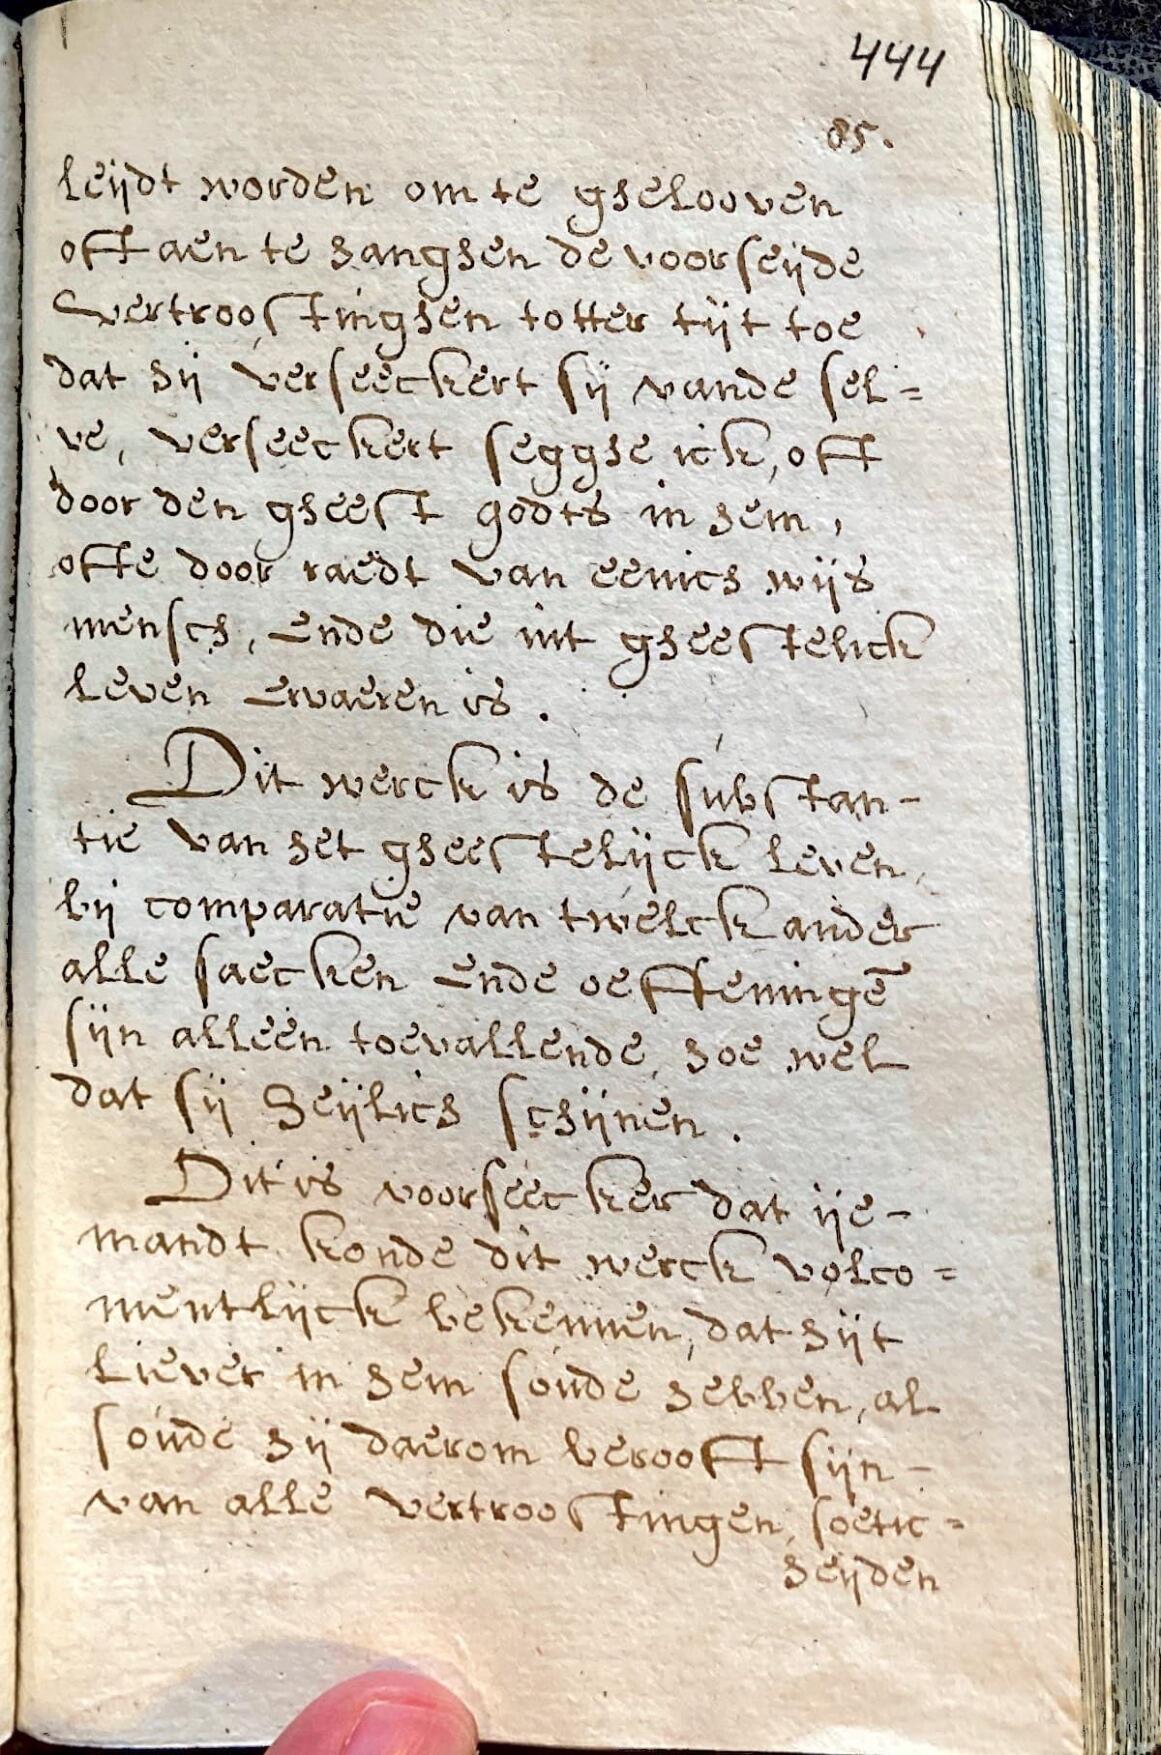 444
85.
leijdt worden om te ghelooven
oft aen te hanghen de voorseijde
vertroostinghen totter tijt toe
dat hij verseeckert sij vande sel=
ve, verseeckert segghe ick, oft
door den gheest godts in hem,
ofte door raedt van eenich wijs
mensch, ende die int gheestelick
leven ervaeren is.
Dit werck is de substan-
tie van het gheestelijck leven,
bij comparatie van twelck ander
alle saecken ende oeffeningē
sijn alleen toevallende, hoe wel
dat sij heijlich schijnen.
Dit is voorseecker dat ije-
mandt konde dit werck volco=
mentlijck bekennen, dat hijt
liever in hem soude hebben, al
soude hij daerom berooft sijn-
van alle vertroostingen, soetic=
heijden